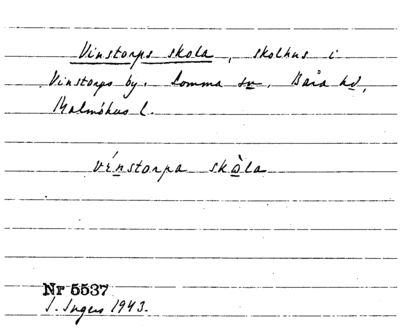 Vinstorps skola, skolhus i
Vinstorps by. Lomma sn. Bara hd,
Malmöhus l.
vénstorpa skòla
Nr 5537
I. Ingers 1943.